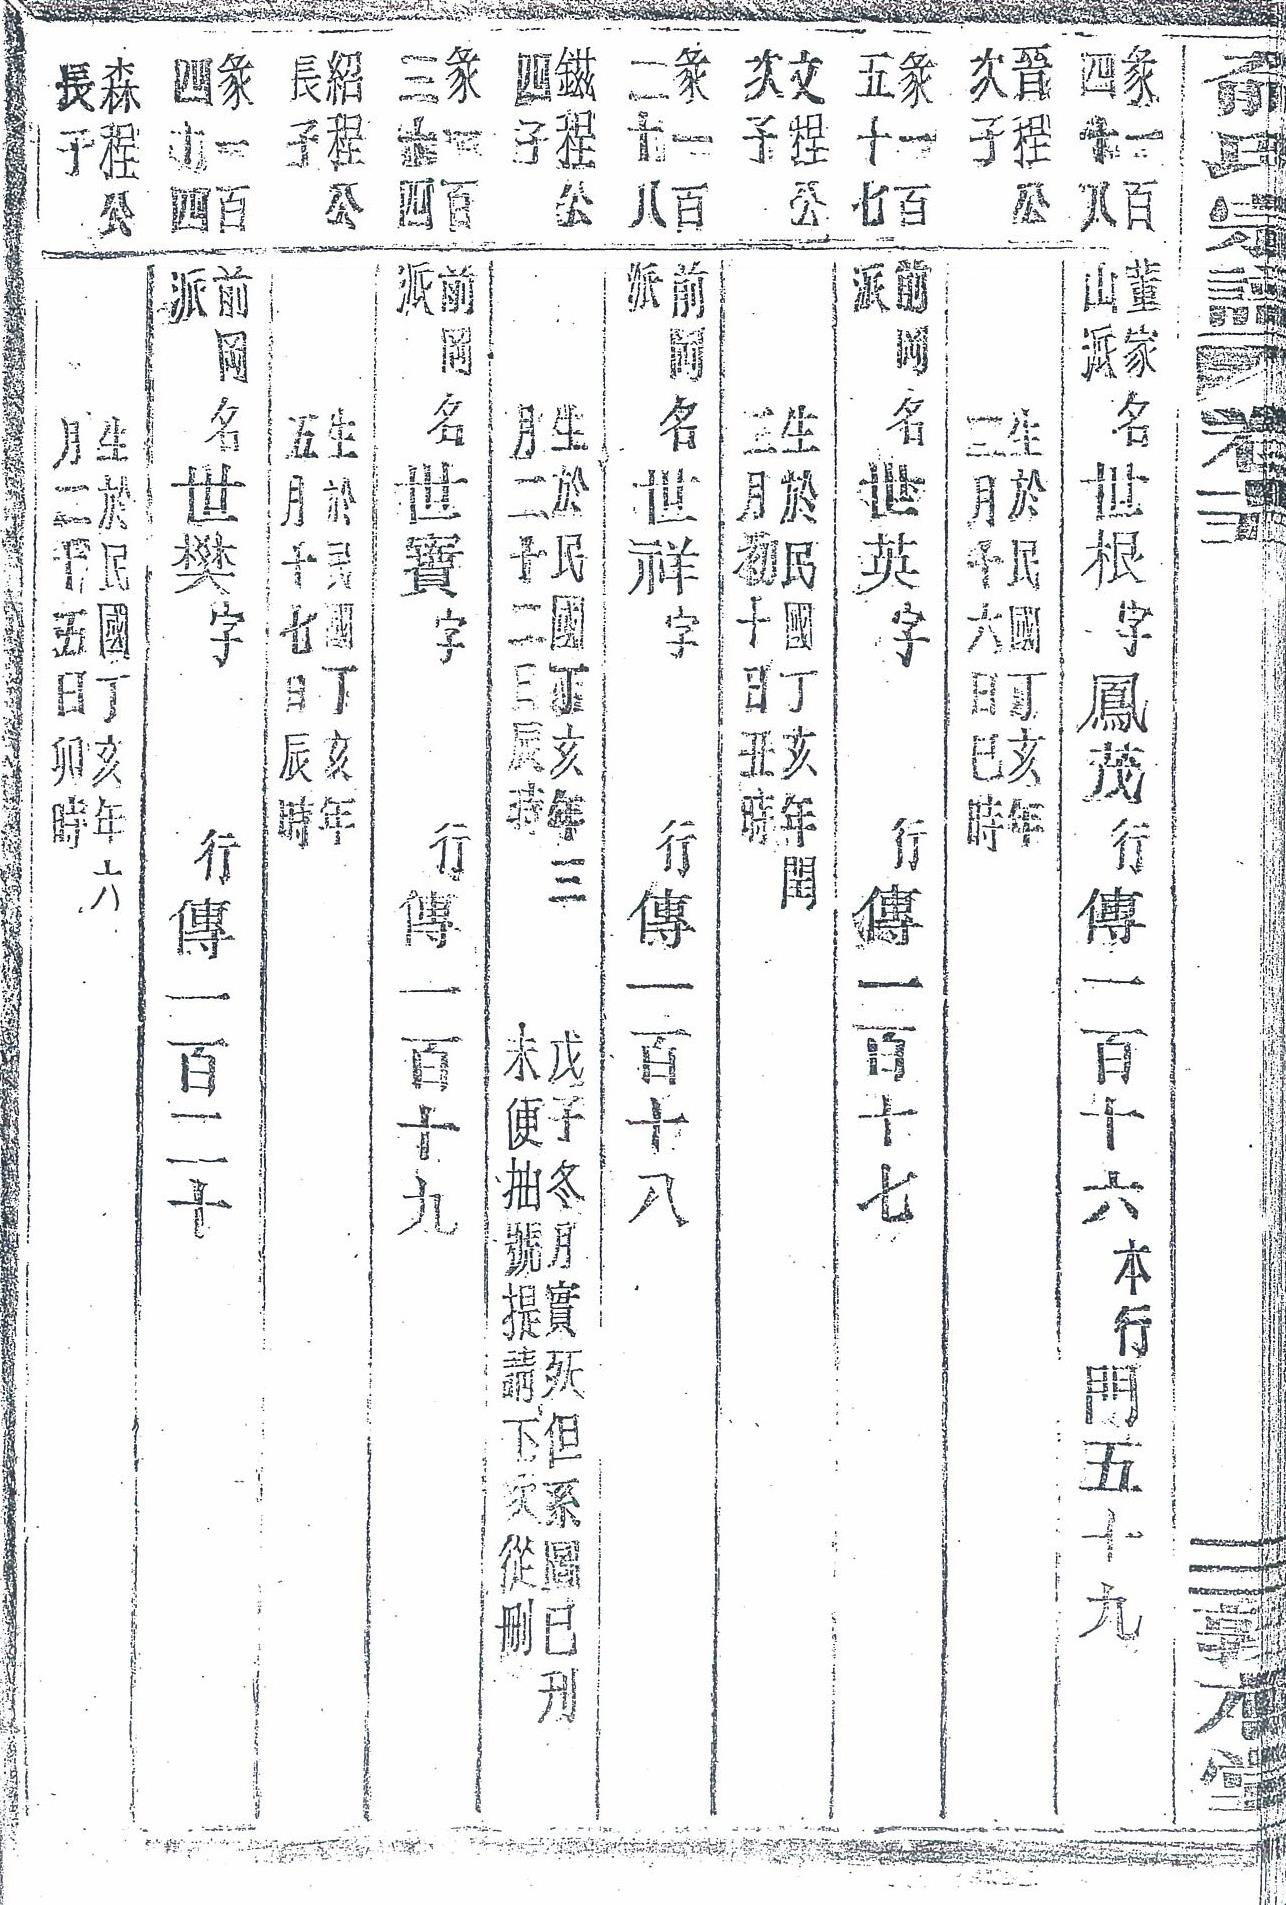 俞氏宗譜 卷二
敦本堂
彖一百
四十八
董家
山派
名世根字鳳茂行傳一百十六本行門五十九
晉程公
次子
生於民國丁亥年
二月十六日巳時
彖一百
五十七
前岡
派
名世英字 行傳一百十七
文程公
次子
生於民國丁亥年閏
二月初十日丑時
彖一百
二十八
前岡
派
名世祥字 行傳一百十八
鎡程公
四子
生於民國丁亥年三
月二十二日辰時
戊子冬月實死但系圖已刊
未便抽號提請下次從刪
彖一百
三十四
前岡
派
名世寶字 行傳一百十九
紹程公
長子
生於民國丁亥年
五月十七日辰時
彖一百
四十四
前岡
派
名世樊字 行傳一百二十
森程公
長子
生於民國丁亥年六
月二十五日卯時